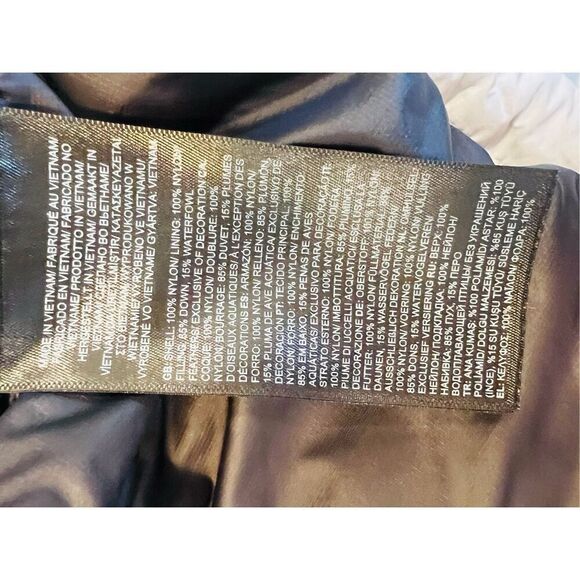 MADE IN VIETNAM/ FABRIQUÉ AU VIETNAM/
FABRICADO EN VIETNAM/ FABRICADO NO
VIETNAME/ PRODOTTO IN VIETNAM/
HERGESTELLT IN VIETNAM/ GEMAAKT IN
VIETNAM/ СДЕЛАНО ВО ВЬЕТНАМЕ/
ΣΤΟ ΚΑΤΑΣΚΕΥΑΖΕΤΑΙ/
VIETNAMIE/ WYPRODUKOWANO W
VYROBENÉ VO VIETNAME/ VYROBENO VE
VIETNAMU/ GYÁRTÁSI, VIETNAM
GB: SHELL: 100% NYLON/ LINING: 100% NYLON/
FILLING: 85% DOWN, 15% WATERFOWL
FEATHERS/ EXCLUSIVE OF DECORATION CA:
COQUE: 100% NYLON/ DOUBLURE: 100%
NYLON/ BOURRAGE: 85% DUVET, 15% PLUMES
D'OISEAUX AQUATIQUES/ À L'EXCEPTION DES
DÉCORATIONS ES: ARMAZÓN: 100% NYLON/
FORRO: 100% NYLON/ RELLENO: 85% PLUMÓN,
15% PLUMA DE AVE ACUÁTICA/ EXCLUSIVO DE
DECORACIÓN PT: TECIDO PRINCIPAL: 100%
NYLON/ FORRO: 100% NYLON/ ENCHIMENTO:
85% EM BAIXO, 15% PENAS DE AVES
AQUÁTICAS/ EXCLUSIVO PARA DECORAÇÃO IT:
STRATO ESTERNO: 100% NYLON/ FODERA:
100% NYLON/ IMBOTTITURA: 85% PIUMINO, 15%
PIUME DI UCCELLI ACQUATICI/ ESCLUSA LA
DECORAZIONE DE: OBERSTOFF: 100% NYLON/
FUTTER: 100% NYLON/ FÜLLMATERIAL: 85%
DAUNEN, 15% WASSERVÖGEL FEDERN/
AUSSCHLIESSLICH DEKORATION NL:
100% NYLON/ VOERING: 100% NYLON/
85% DONS, 15% WATERVOGELVEREN/
EXCLUSIEF VERSIERING RU: ВЕРХ: 100%
НЕЙЛОН/ ПОДКЛАДКА: 100% НЕЙЛОН/
НАБИВКА: 85% ПУХ, 15% ПЕРО
ВОДОПЛАВАЮЩЕЙ ПТИЦЫ/ БЕЗ УКРАШЕНИЙ
TR: ANA KUMAŞ: %100 POLİAMİD/ ASTAR: %100
POLİAMİD/ DOLGU MALZEMESİ: %85 KUŞ TÜYÜ
(İNCE), %15 SU KUŞU TÜYÜ/ SÜSLEME HARİÇ
EL: 100% ΝΑΪΛΟΝ/ ΦΟΔΡΑ: 100%